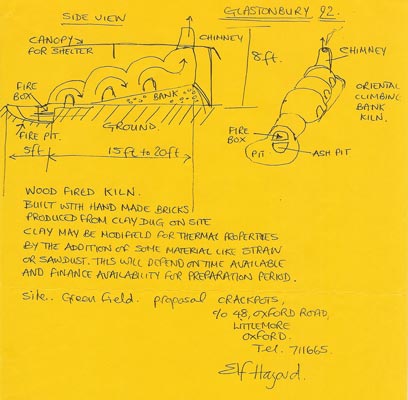 SIDE VIEW
GLASTONBURY 92.
CANOPY
FOR SHELTER
CHIMNEY
8ft.
CHIMNEY
FIRE
BOX
BANK
ORIENTAL
CLIMBING
BANK
KILN.
FIRE PIT.
GROUND.
FIRE
BOX
PIT
ASH PIT
5ft
15ft to 20ft
WOOD FIRED KILN.
BUILT WITH HAND MADE BRICKS
PRODUCED FROM CLAY DUG ON SITE
CLAY MAY BE MODIFIED FOR THERMAL PROPERTIES
BY THE ADDITION OF SOME MATERIAL LIKE STRAW
OR SAWDUST. THIS WILL DEPEND ON TIME AVAILABLE
AND FINANCE AVAILABILITY FOR PREPARATION PERIOD.
Site.. Green field. proposal CRACKPOTS,
c/o 48, OXFORD ROAD,
LITTLEMORE
OXFORD.
Tel. 711665.
Elf Hazard.